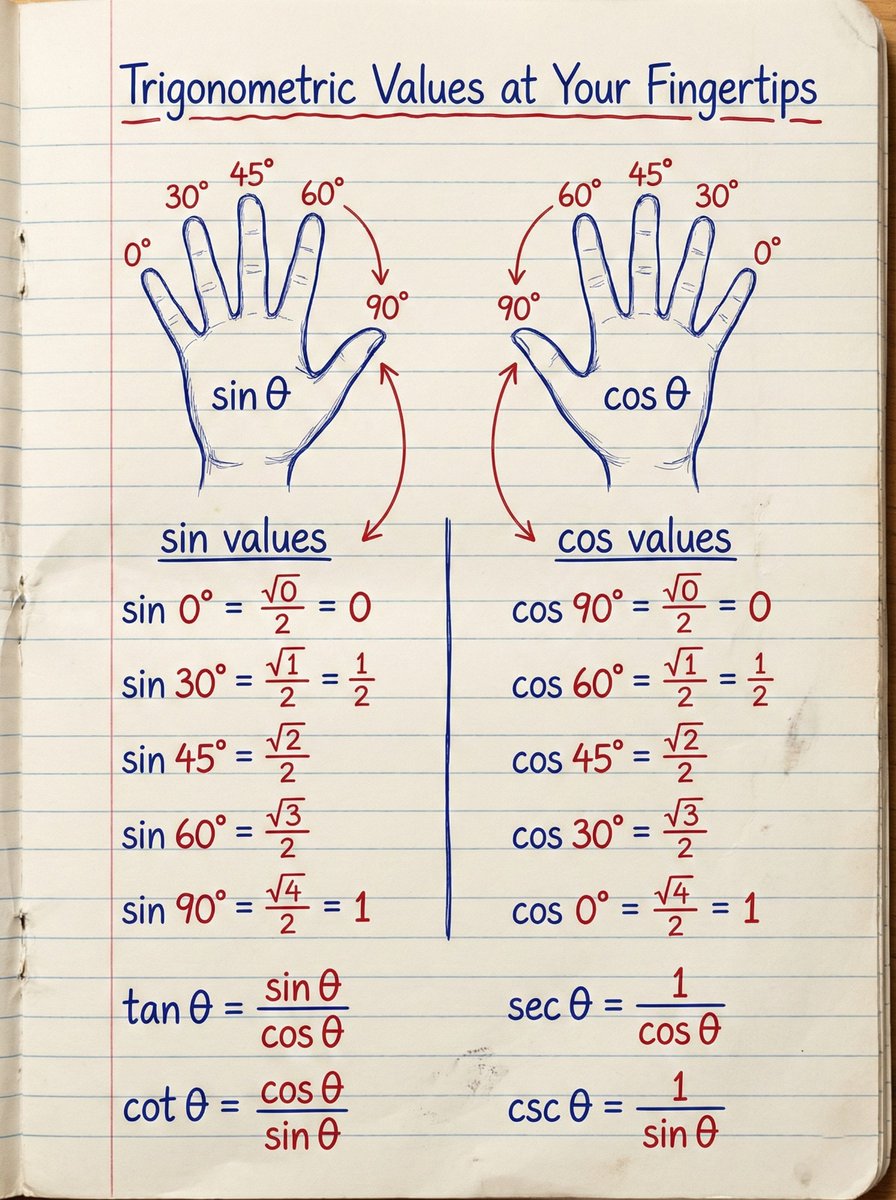 Trigonometric Values at Your Fingertips
0° 30° 45° 60° 90°
sin θ
90° 60° 45° 30° 0°
cos θ
sin values
sin 0° = √0/2 = 0
sin 30° = √1/2 = 1/2
sin 45° = √2/2
sin 60° = √3/2
sin 90° = √4/2 = 1
cos values
cos 90° = √0/2 = 0
cos 60° = √1/2 = 1/2
cos 45° = √2/2
cos 30° = √3/2
cos 0° = √4/2 = 1
tan θ = sin θ/cos θ
sec θ = 1/cos θ
cot θ = cos θ/sin θ
csc θ = 1/sin θ